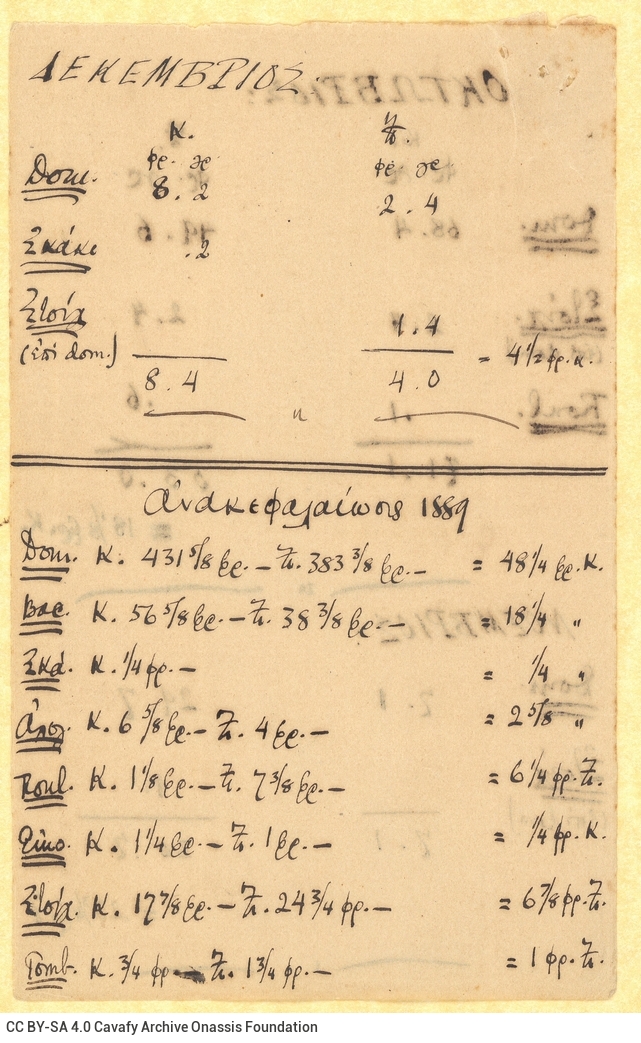 ΔΕΚΕΜΒΡΙΟΣ.
Κ. Ζ.
φρ. γρ φρ γρ
Dom. 8.2 2.4
Σκάκι .2
Στοίχ 1.4
(ἐπὶ dom.) = 4 1/2 φρ. κ.
8.4 4.0
"
Ἀνακεφαλαίωσις 1889
Dom. Κ. 431 5/8 φρ. – Ζ. 383 3/8 φρ. – = 48 1/4 φρ. Κ.
Bac. Κ. 56 5/8 φρ. – Ζ. 38 3/8 φρ. – = 18 1/4 "
Σκά. Κ. 1/4 φρ. – = 1/4 "
Κ. 6 5/8 φρ. – Ζ. 4 φρ. – = 2 5/8 "
Roul. Κ. 1 1/8 φρ. – Ζ. 7 3/8 φρ. – = 6 1/4 φρ. Ζ.
Κ. 1 1/4 φρ. – Ζ. 1 φρ. – = 1/4 φρ. Κ.
Στοίχ. Κ. 17 7/8 φρ. – Ζ. 24 3/4 φρ. – = 6 7/8 φρ. Ζ.
Tomb. Κ. 3/4 φρ – Ζ. 1 3/4 φρ. – = 1 φρ. Ζ.
CC BY-SA 4.0 Cavafy Archive Onassis Foundation